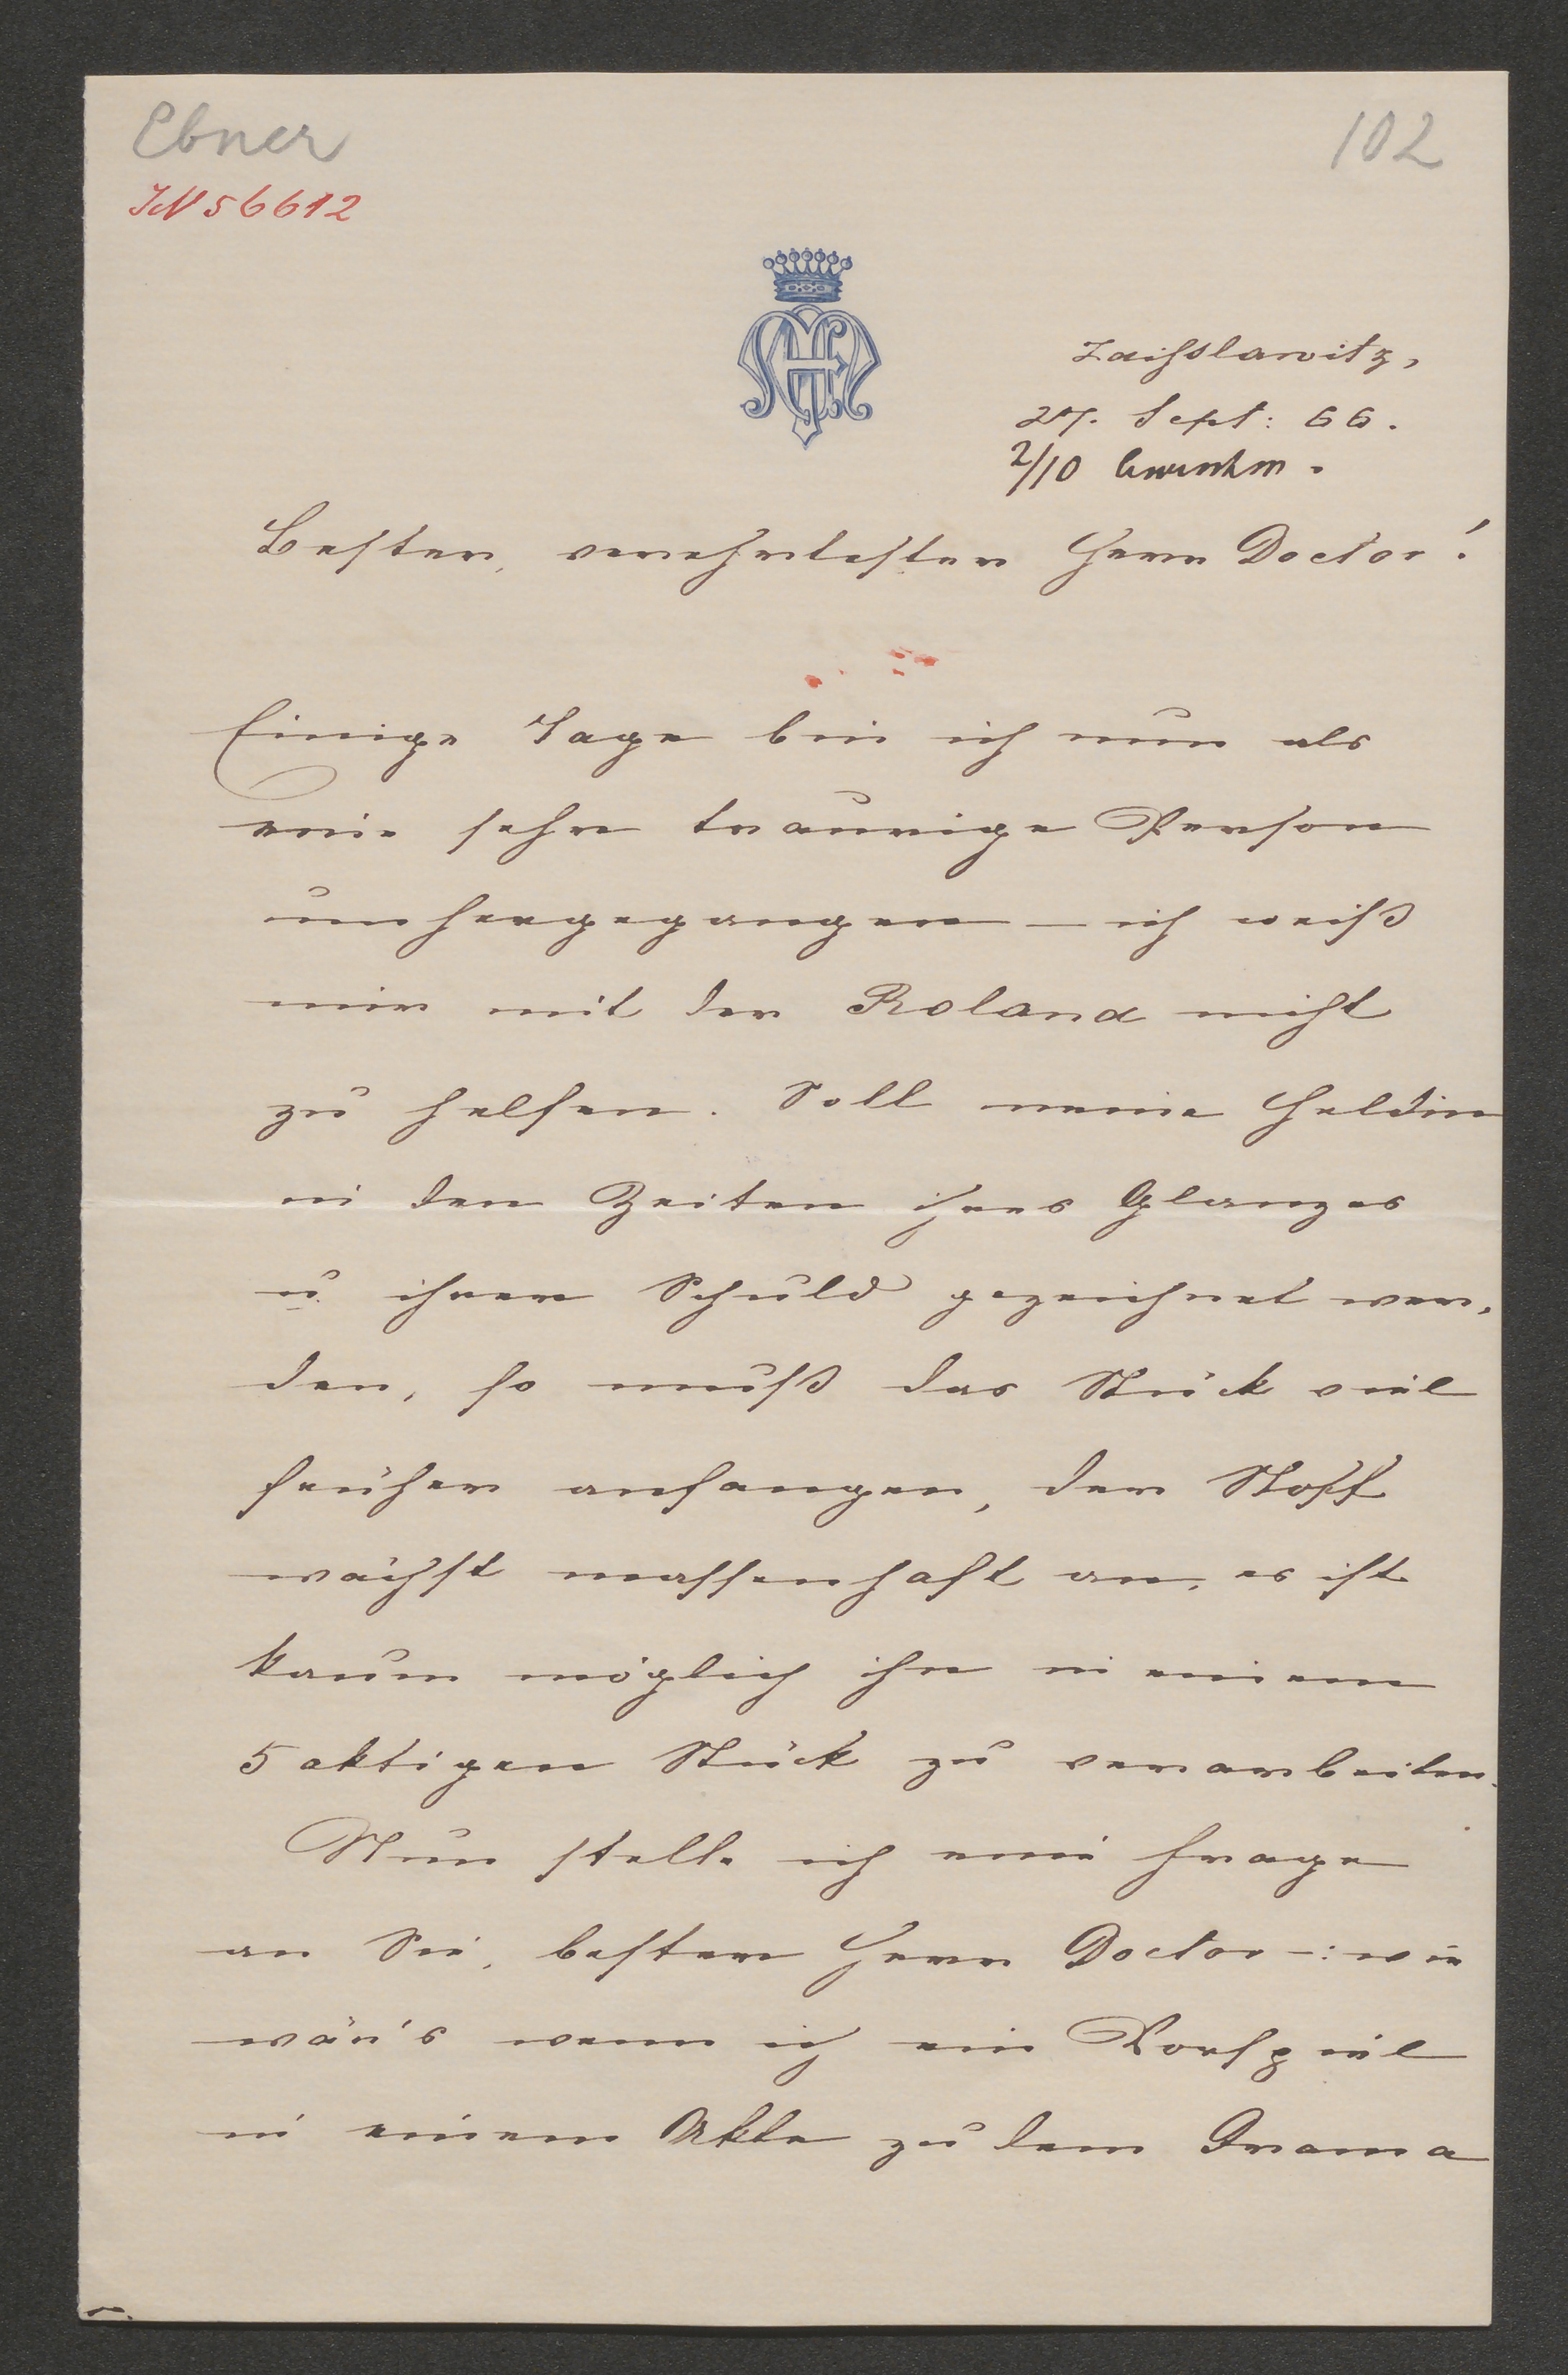 Ebner
102
IN 56612
Zaihslawitz,
27. Sept: 66.
2/10
Bester, verehrtester Herr Doctor!
Einige Tage bin ich nun als
eine sehr traurige Person
umhergegangen — ich weiß
mir mit der Roland nicht
zu helfen. Soll meine Heldin
in den Zeiten ihres Glanzes
u ihrer Schuld gezeichnet wer,
den, so muß das Stück viel
früher anfangen, der Stoff
wächst massenhaft an, es ist
kaum möglich ihn in einem
5 aktigen Stück zu verarbeiten.
Nun stelle ich eine Frage
an Sie, bester Herr Doctor -: wie
wär's wenn ich ein Vorspiel
in einem Akte zu dem Drama